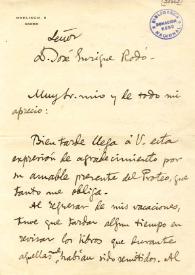 Señor
D. José Enrique Rodó.
Muy Sr. mio y de todo mi
aprecio:
Bien tarde llega á V. esta
expresión de agradecimiento por
su amable presente del Proteo, que
tanto me obliga.
Al regresar de mis vacaciones,
tuve que tardar algun tiempo en
revisar los libros que durante
aquellas, habian sido remitidos. Al